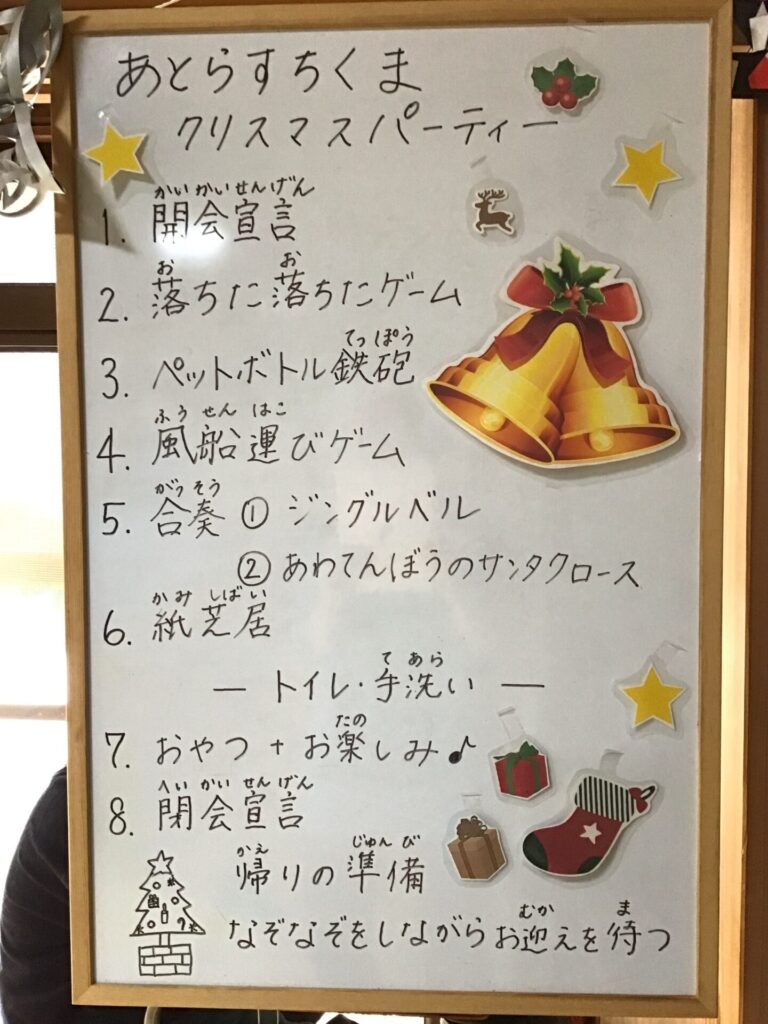 あとらすちくま
クリスマスパーティー
かいかいせんげん
1. 開会宣言
お お
2. 落ちた落ちたゲーム
てっぽう
3. ペットボトル鉄砲
ふうせん はこ
4. 風船運びゲーム
がっそう
5. 合奏 ① ジングルベル
② あわてんぼうのサンタクロース
かみしばい
6. 紙芝居
て あら
― トイレ・手洗い ―
たの
7. おやつ + お楽しみ♪
へいかいせんげん
8. 閉会宣言
かえ じゅんび
帰りの準備
むか ま
なぞなぞをしながらお迎えを待つ